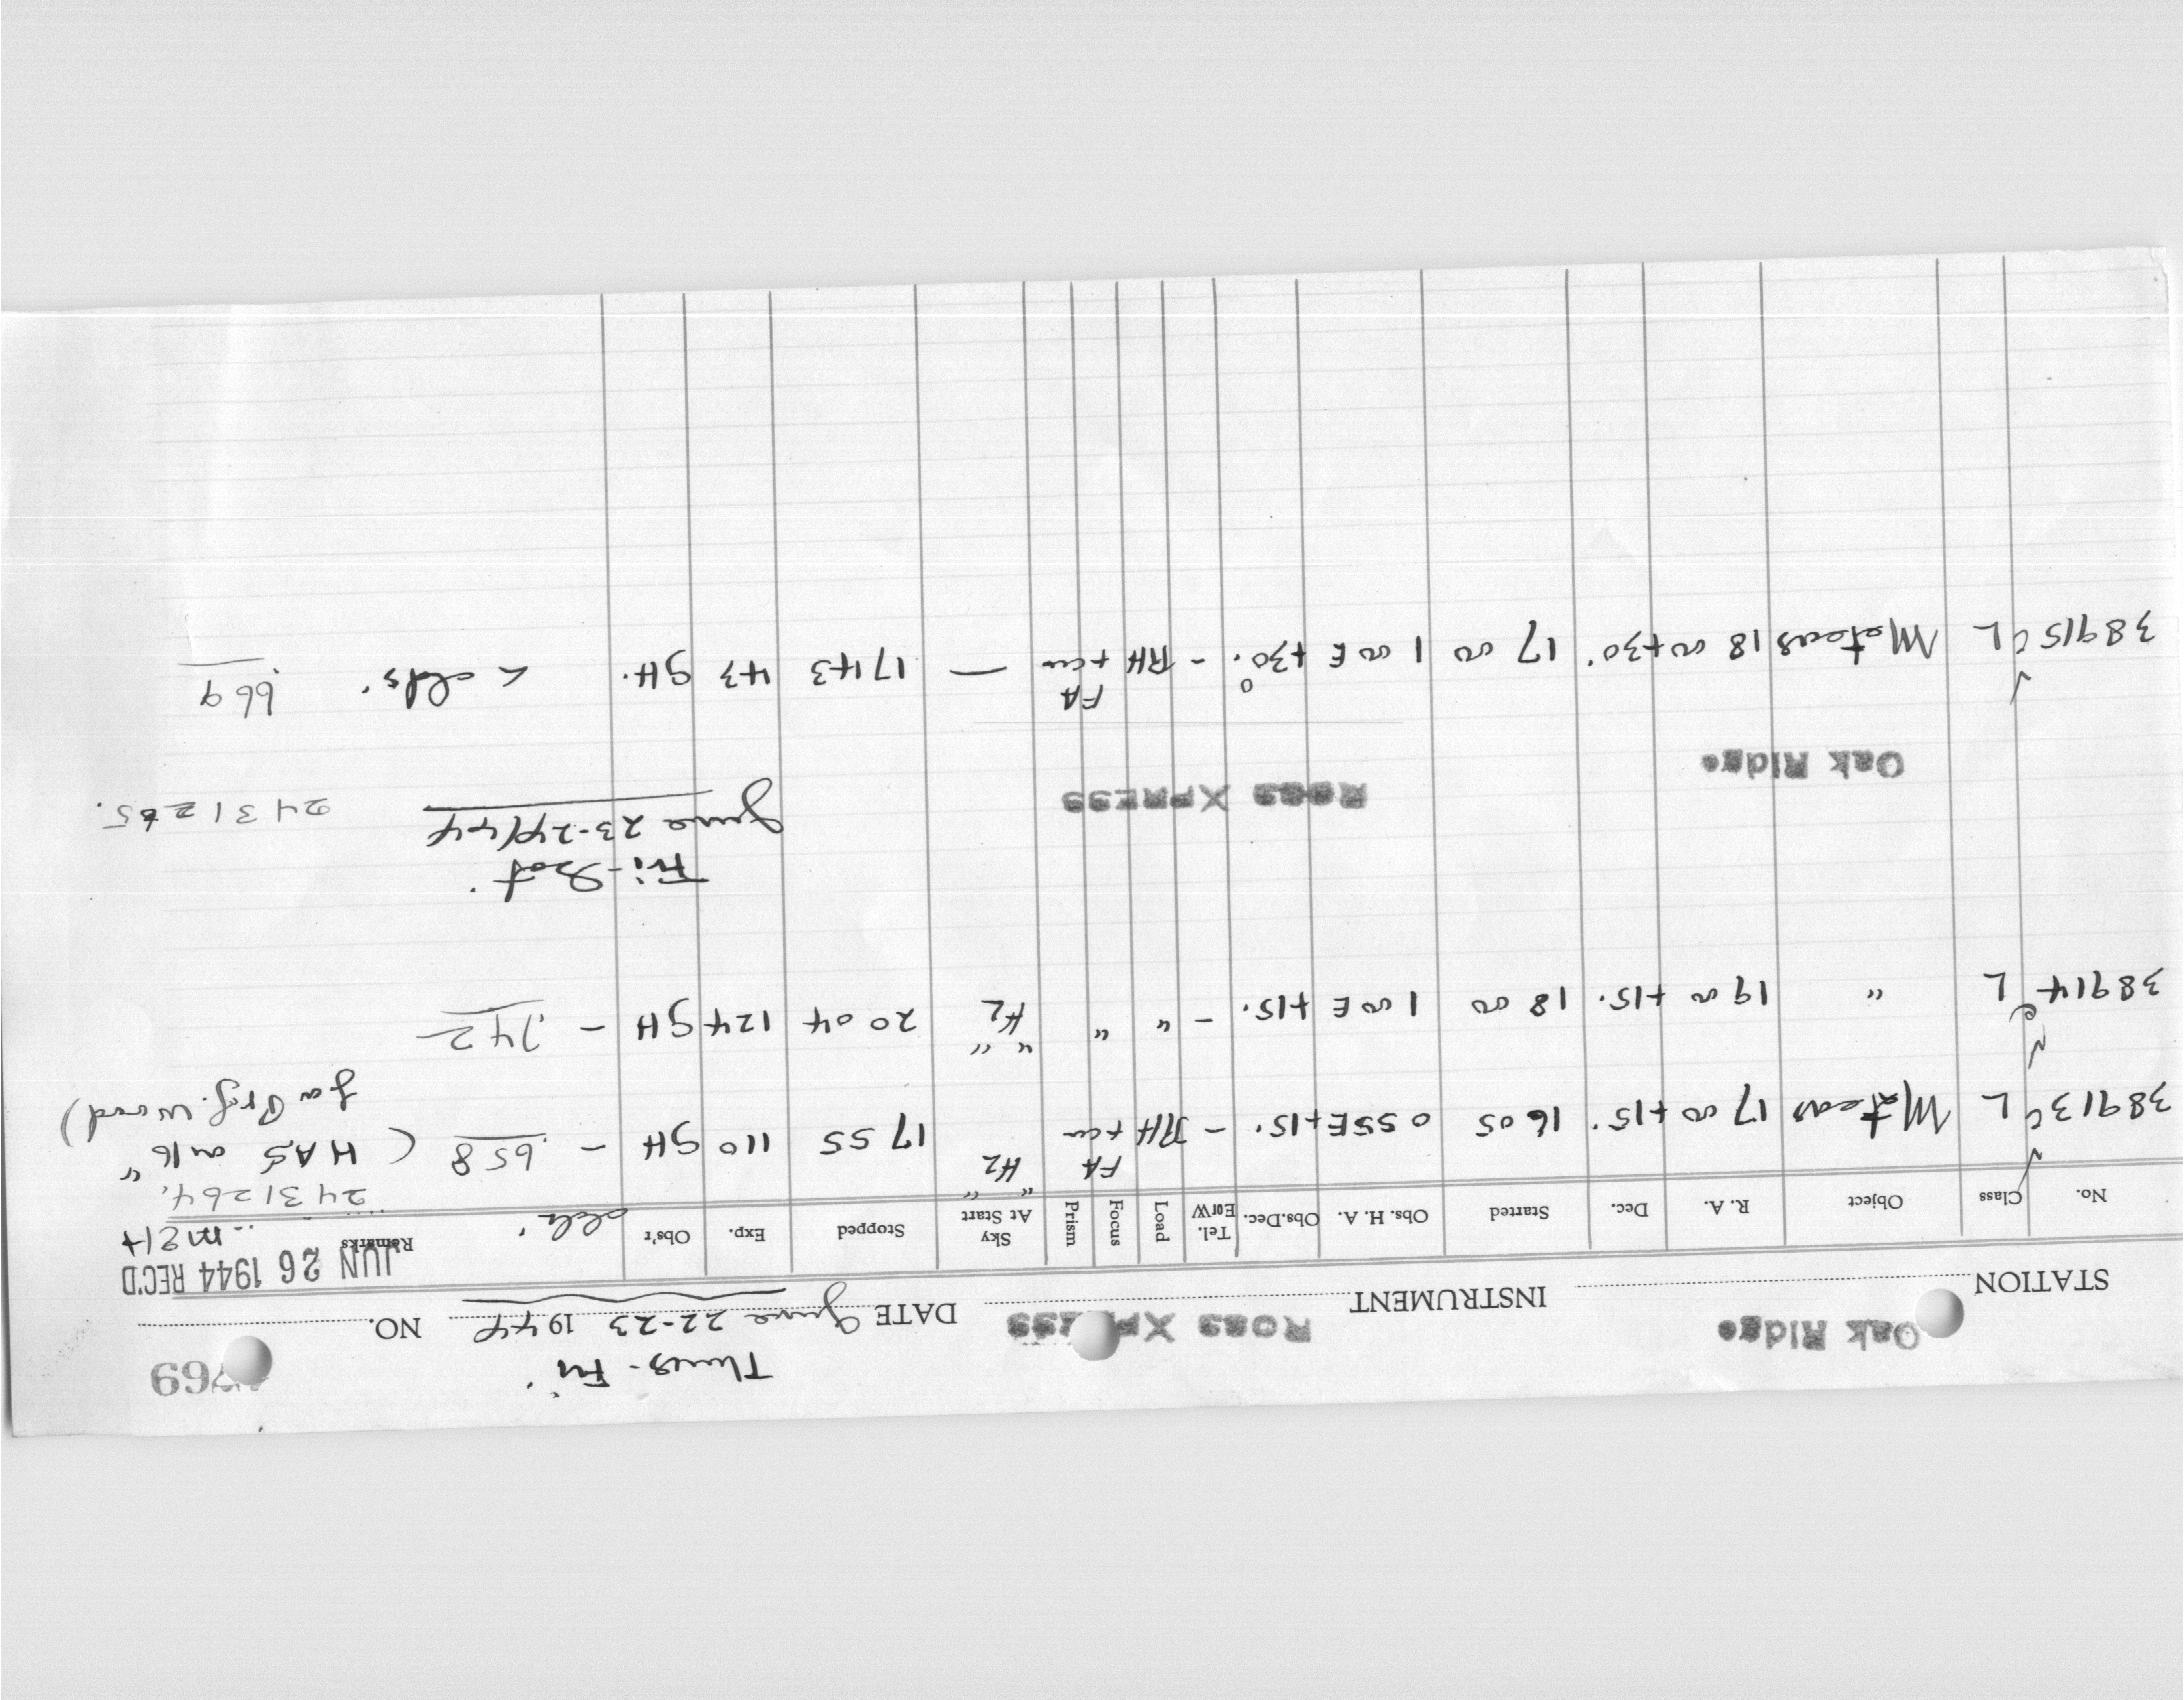 69
Thurs - Fri.
STATION Oak Ridge INSTRUMENT Ross XPRESS DATE June 22-23 1944 NO.
JUN 26 1944 REC'D
No. Class Object R. A. Dec. Started Obs. H. A. Obs.Dec. Tel. E or W Load Focus Prism Sky At Start Stopped Exp. Obs'r Remarks
2431264.
38913 C L Meteors 17 00 +15. 16 05 0 55E +15. - RH FA + cur " " Hz 17 55 110 SH - .658 ( HAS on 16 "
for Prof. Wood)
38914 C L " 19 00 +15. 18 00 1 00 E +15. - " " " " Hz 20 04 124 SH - .742
Fri - Sat.
June 23-24/44 2431265.
Oak Ridge Ross XPRESS
38915 C L Meteors 18 00 +30. 17 00 1 00 E +30°. - RH FA + cur — 17 43 43 SH. < clds. .669